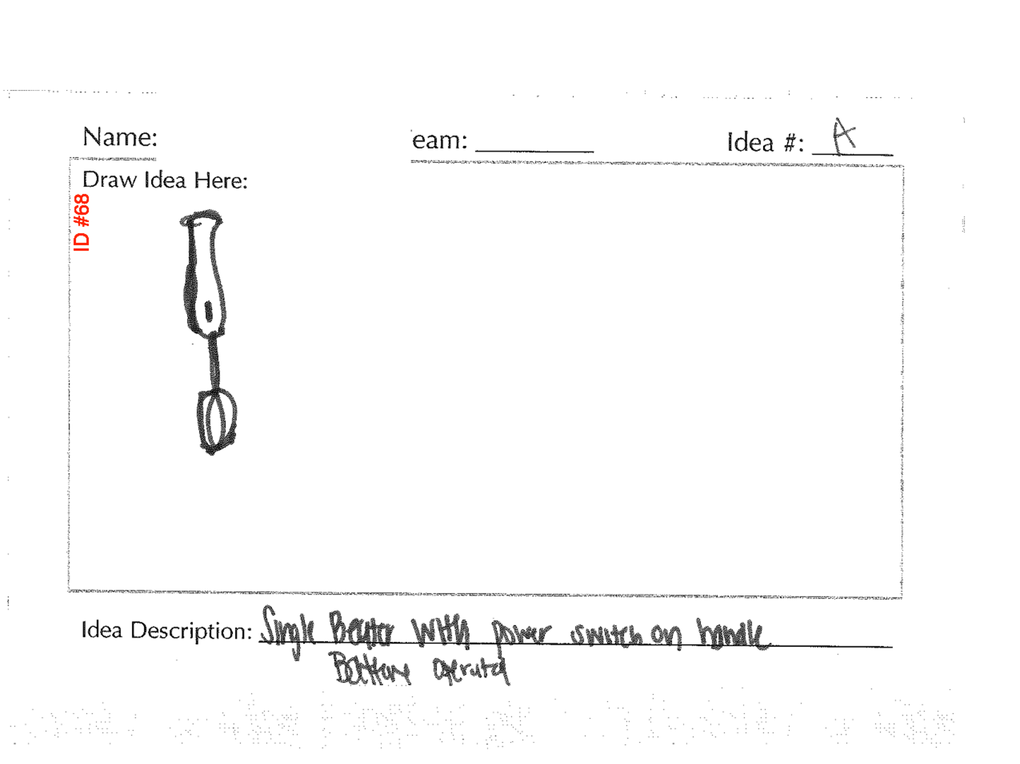 Name: eam: Idea #: A
Draw Idea Here:
ID #68
Idea Description: Single Beater with power switch on handle
Battery operated